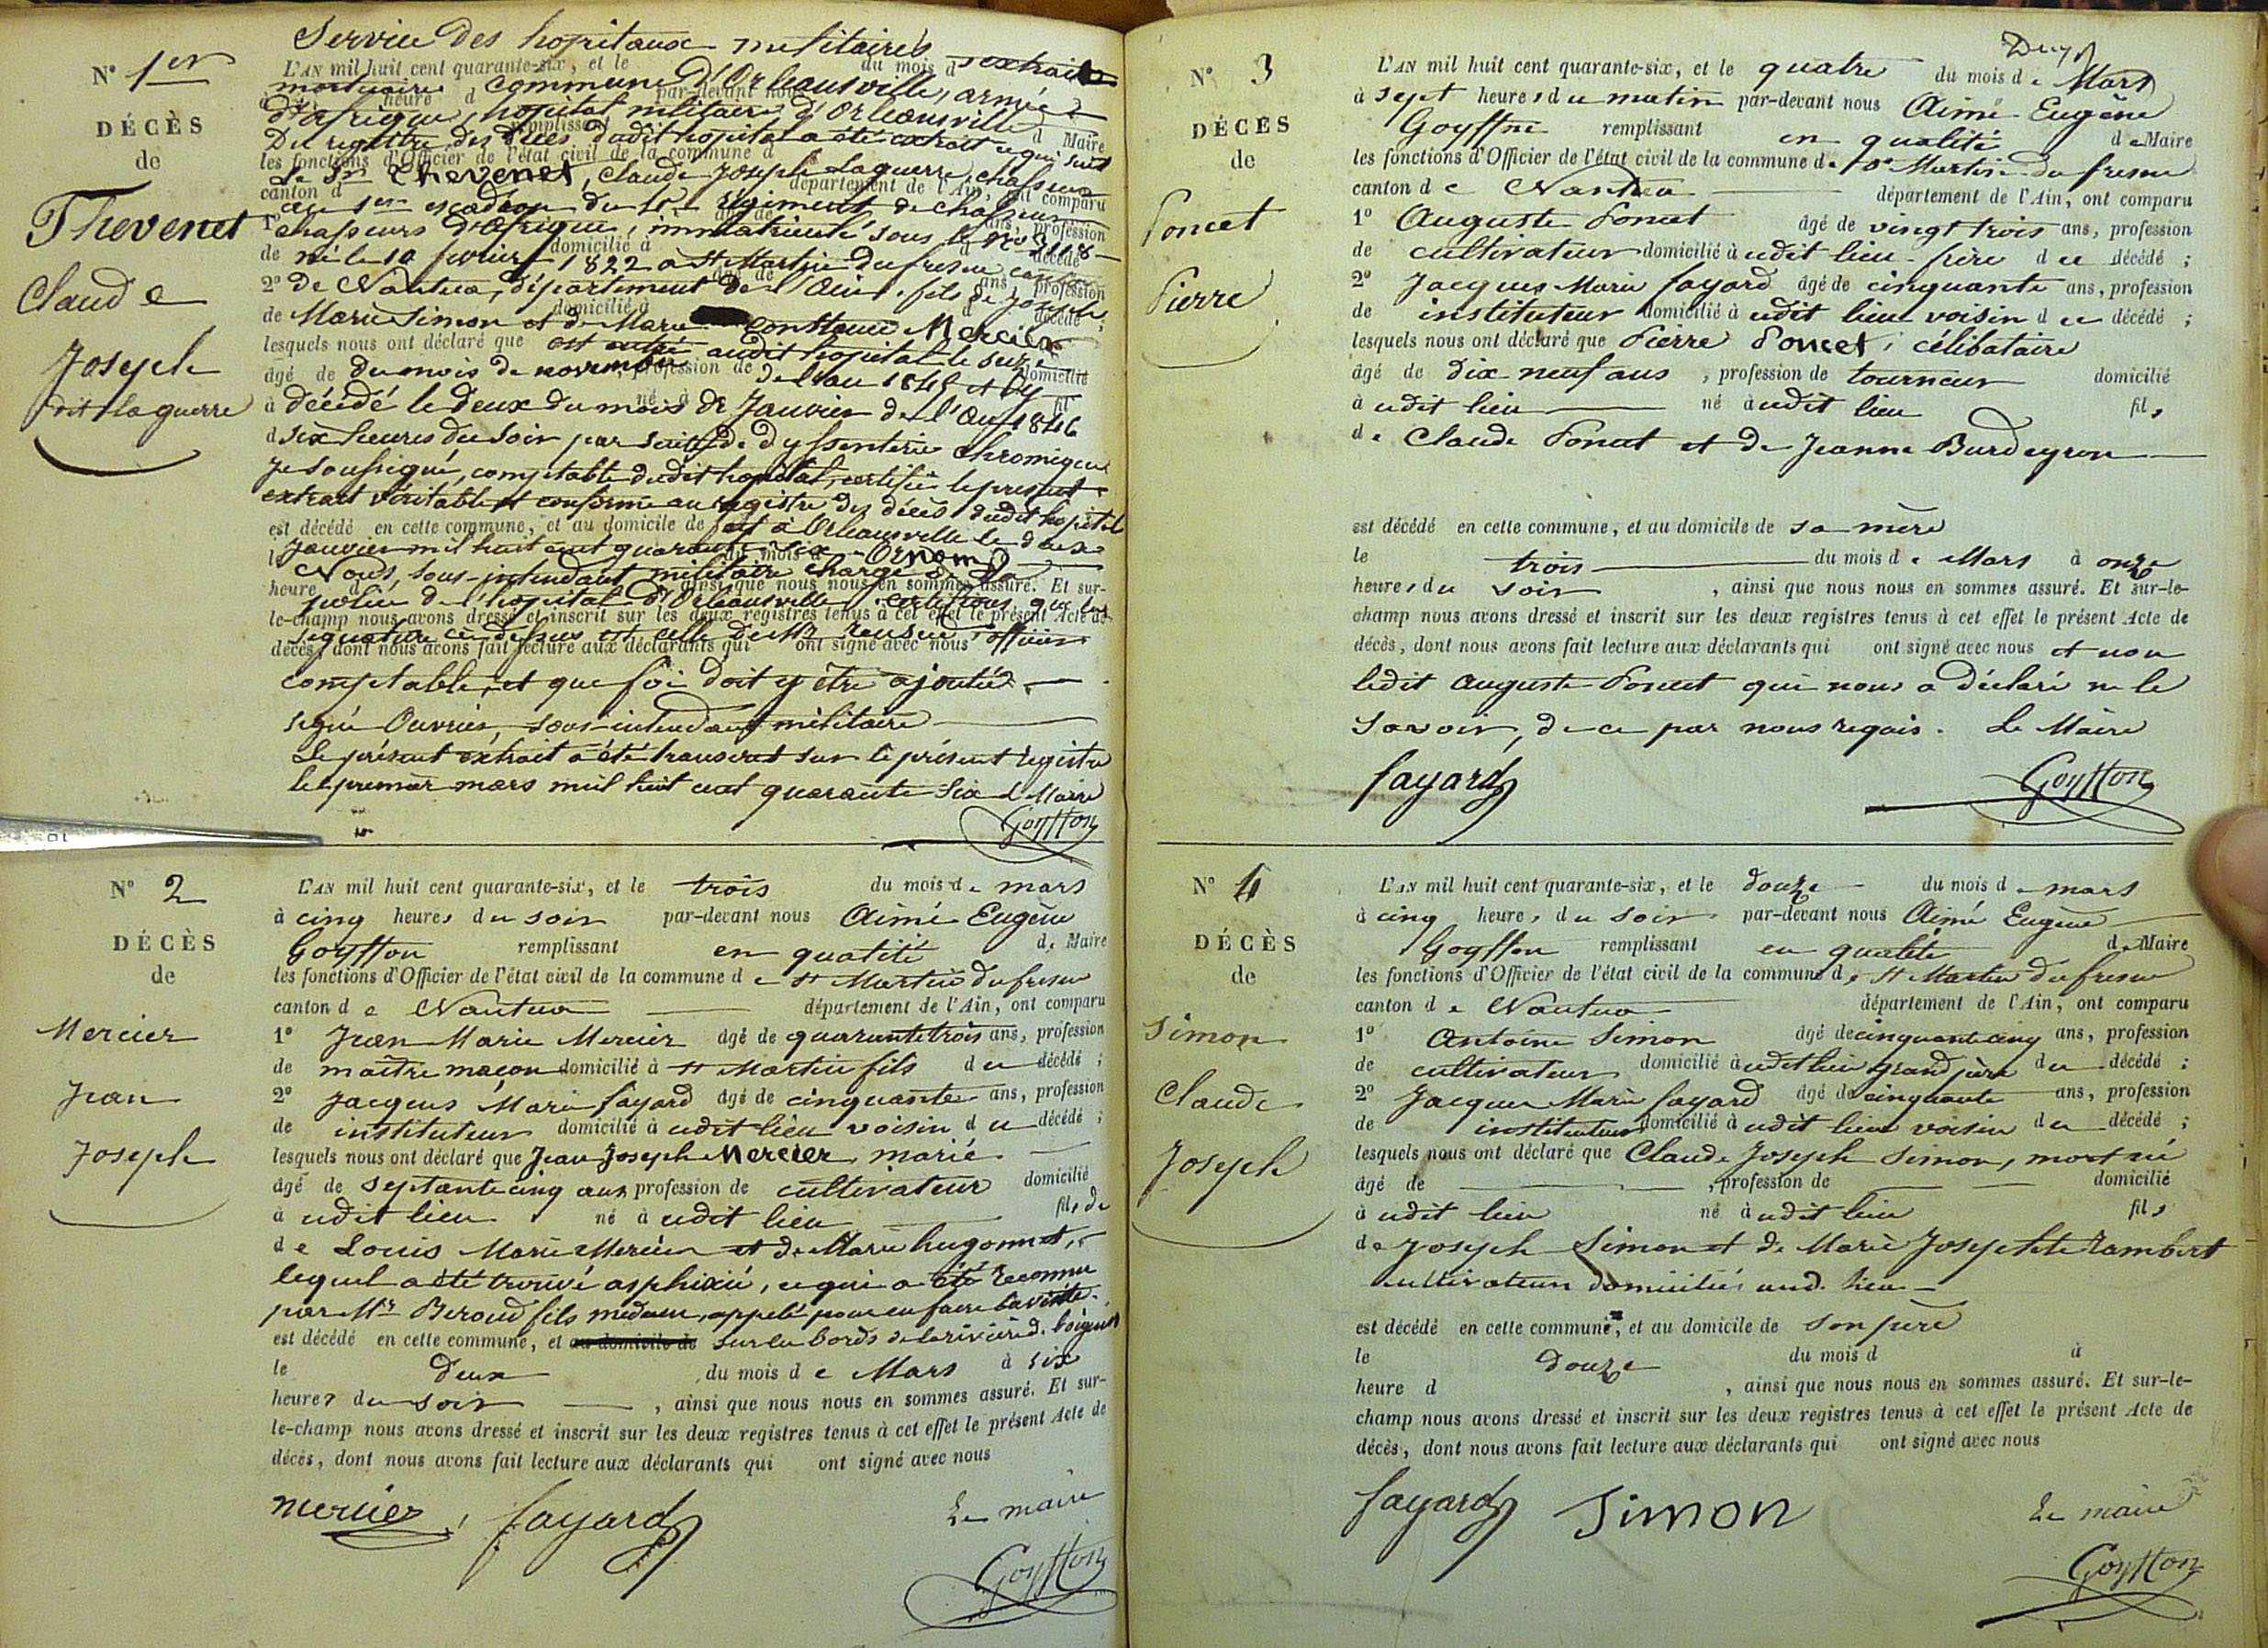 N° 1er
DÉCÈS
de
Thevenet
Claude
Joseph
dit Laguerre
Service des hopitaux militaires
L'AN mil huit cent quarante-six, et le du mois d extrait
mortuaire commune d'Orléansville, armée
heure d par-devant nous
d'afrique, hopital militaire d'Orléansville
remplissant d Maire
Du registre des décès dudit hopital a été extrait ce qui suit
les fonctions d'Officier de l'état civil de la commune d
Le Sr Thevenet, Claude Joseph Laguerre, chasseur
canton d département de l'Ain, ont comparu
au 1er escadron du régiment de chasseurs
1° ans, profession
chasseurs d'afrique, immatriculé sous le N° 3118
de domicilié à d décédé
né le 10 1822 à St Martin du fresne canton
2° âgé de ans, profession
de Nantua, département de l'Ain, fils de Joseph
de domicilié à d décédé ;
Marie Simon et de Marie Constance Mercier
lesquels nous ont déclaré que est entré audit hopital le
âgé de du mois de novembre, profession de de l'an 1845 et y domicilié
à décédé le deux du mois de Janvier de l'an 1846
d six heures du soir par suite de dyssenterie chronique
Je soussigné, comptable dudit hopital, certifie le présent
extrait véritable et conforme au registre des décès dudit hopital
est décédé en cette commune, et au domicile de fait à Orléansville le deux
Janvier mil huit cent quarante six
Nous, sous-intendant militaire chargé de la
heure d ainsi que nous nous en sommes assuré. Et sur-
police de l'hopital d'Orléansville, certifions que la
le-champ nous avons dressé et inscrit sur les deux registres tenus à cet effet le présent Acte de
signature ci dessus est celle de Mr officier
décès, dont nous avons fait lecture aux déclarants qui ont signé avec nous
comptable, et que foi doit y être ajoutée.
signé Ouvrier, sous-intendant militaire
Le présent extrait a été transcrit sur le présent registre
le premier mars mil huit cent quarante six le Maire
Goyffon
N° 2
DÉCÈS
de
Mercier
Jean
Joseph
L'AN mil huit cent quarante-six, et le trois du mois de mars
à cinq heures du soir par-devant nous Aimé Eugène
Goyffon remplissant en qualité de Maire
les fonctions d'Officier de l'état civil de la commune de St Martin du fresne
canton de Nantua département de l'Ain, ont comparu
1° Jean Marie Mercier âgé de quarante trois ans, profession
de maître maçon domicilié à St Martin fils du décédé ;
2° Jacques Marie fayard âgé de cinquante ans, profession
de instituteur domicilié à udit lieu voisin du décédé ;
lesquels nous ont déclaré que Jean Joseph Mercier, marié
âgé de septante cinq ans, profession de cultivateur domicilié
à udit lieu né à udit lieu fils de
de Louis Marie Mercier et de Marie hugonnet,
lequel a été trouvé asphixié, ce qui a été reconnu
par Mr Beroud fils médecin, appelé pour en faire la visite.
est décédé en cette commune, et au domicile de sur les bords de la rivière d.
le deux du mois de Mars à six
heures du soir , ainsi que nous nous en sommes assuré. Et sur-
le-champ nous avons dressé et inscrit sur les deux registres tenus à cet effet le présent Acte de
décès, dont nous avons fait lecture aux déclarants qui ont signé avec nous
mercier, fayard
Le maire
Goyffon
N° 3
DÉCÈS
de
Poncet
Pierre
L'AN mil huit cent quarante-six, et le quatre du mois de Mars
à sept heures du matin par-devant nous Aimé Eugène
Goyffon remplissant en qualité de Maire
les fonctions d'Officier de l'état civil de la commune de St Martin du fresne
canton de Nantua département de l'Ain, ont comparu
1° Auguste Poncet âgé de vingt trois ans, profession
de cultivateur domicilié à udit lieu frère du décédé ;
2° Jacques Marie fayard âgé de cinquante ans, profession
de instituteur domicilié à udit lieu voisin du décédé ;
lesquels nous ont déclaré que Pierre Poncet, célibataire
âgé de dix neuf ans, profession de tourneur domicilié
à udit lieu né à udit lieu fils
de Claude Poncet et de Jeanne Burdeyron
est décédé en cette commune, et au domicile de sa mère
le trois du mois de Mars à onze
heures du soir , ainsi que nous nous en sommes assuré. Et sur-le-
champ nous avons dressé et inscrit sur les deux registres tenus à cet effet le présent Acte de
décès, dont nous avons fait lecture aux déclarants qui ont signé avec nous et non
ledit Auguste Poncet qui nous a déclaré ne le
savoir, de ce par nous requis. Le Maire
fayard Goyffon
N° 4
DÉCÈS
de
Simon
Claude
Joseph
L'AN mil huit cent quarante-six, et le douze du mois de mars
à cinq heures du soir par-devant nous Aimé Eugène
Goyffon remplissant en qualité de Maire
les fonctions d'Officier de l'état civil de la commune de St Martin du fresne
canton de Nantua département de l'Ain, ont comparu
1° Antoine Simon âgé de cinquante cinq ans, profession
de cultivateur domicilié à udit lieu grand père du décédé ;
2° Jacques Marie fayard âgé de cinquante ans, profession
de instituteur domicilié à udit lieu voisin du décédé ;
lesquels nous ont déclaré que Claude Joseph Simon, mort né
âgé de , profession de domicilié
à udit lieu né à udit lieu fils
de Joseph Simon et de Marie Josephte Rambert
cultivateurs domiciliés aud. lieu
est décédé en cette commune, et au domicile de son père
le douze du mois d à
heure d , ainsi que nous nous en sommes assuré. Et sur-le-
champ nous avons dressé et inscrit sur les deux registres tenus à cet effet le présent Acte de
décès, dont nous avons fait lecture aux déclarants qui ont signé avec nous
fayard Simon
Le maire
Goyffon